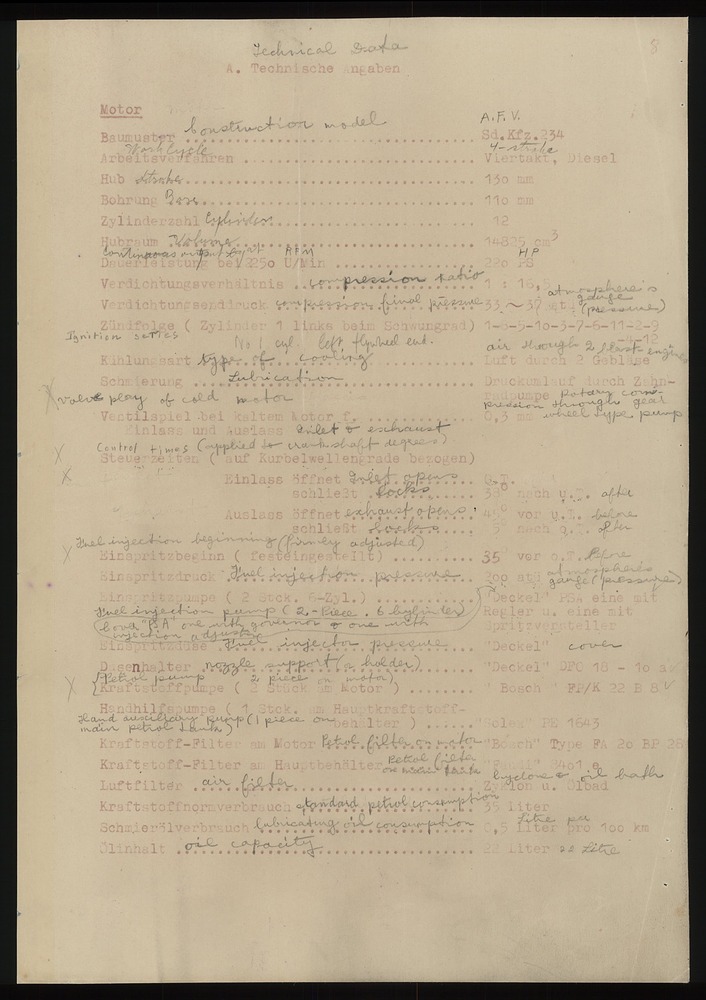 Technical Data
8
A. Technische Angaben
Motor
Construction model
A.F.V.
Baumuster Sd.Kfz.234
Work cycle
4-stroke
Arbeitsverfahren Viertakt, Diesel
Hub Stroke 130 mm
Bohrung Bore 110 mm
Zylinderzahl Cylinders 12
Hubraum Volume 14825 cm³
Continuous output at RPM
HP
Dauerleistung bei 2250 U/Min 220 PS
Verdichtungsverhältnis compression ratio 1 : 16,
Verdichtungsenddruck compression final pressure 33 ~ 35 at.
atmospheres gauge (pressure)
Zündfolge ( Zylinder 1 links beim Schwungrad) 1-8-5-10-3-7-6-11-2-9
-4-12
Ignition series
No 1 cyl. left flywheel end.
air through 2 blast engines
Kühlungsart type of cooling Luft durch 2 Gebläse
Schmierung Lubrication Druckumlauf durch Zahn-
radpumpe Rotary com-
pression through gear
wheel type pump
valve play of cold motor
Ventilspiel bei kaltem Motor f. 0,3 mm
Einlass und Auslass Inlet & exhaust
Control times (applied to crankshaft degrees)
Steuerzeiten ( auf Kurbelwellengrade bezogen)
Einlass öffnet Inlet opens o.T.
schließt locks 38° nach u.T. after
Auslass öffnet exhaust opens 45° vor u.T. before
schließt locks 5° nach o.T. after
Fuel injection beginning (firmly adjusted)
Einspritzbeginn ( festeingestellt) 35° vor o.T. before
Einspritzdruck Fuel injection pressure 200 atü
atmospheres gauge (pressure)
Einspritzpumpe ( 2 Stck. 6-Zyl.) "Deckel" PSA eine mit
Regler u. eine mit
Spritzversteller
Fuel injection pump (2-Piece. 6 cylinder)
(cover PSA one with governor & one with
injection adjuster
Einspritzdüse Fuel injector pressure "Deckel" cover
Düsenhalter nozzle support (a holder) "Deckel" DFC 18 - 10 a
Petrol pump 2 piece on motor)
Kraftstoffpumpe ( 2 Stück am Motor ) " Bosch " FP/K 22 B 8
Handhilfspumpe ( 1 Stck. am Hauptkraftstoff-
behälter ) "Solex" PE 1643
Hand auxiliary pump (1 piece on
main petrol tank)
Kraftstoff-Filter am Motor Petrol filter on motor "Bosch" Type FA 20 BP 28
Kraftstoff-Filter am Hauptbehälter Petrol filter
on main tank
3401 a
Luftfilter air filter Zyklon u. Ölbad
cyclone & oil bath
Kraftstoffnormverbrauch standard petrol consumption 35 liter
Schmierölverbrauch lubricating oil consumption 0,5 liter pro 100 km
Litre per
Ölinhalt oil capacity 22 liter 22 Litre